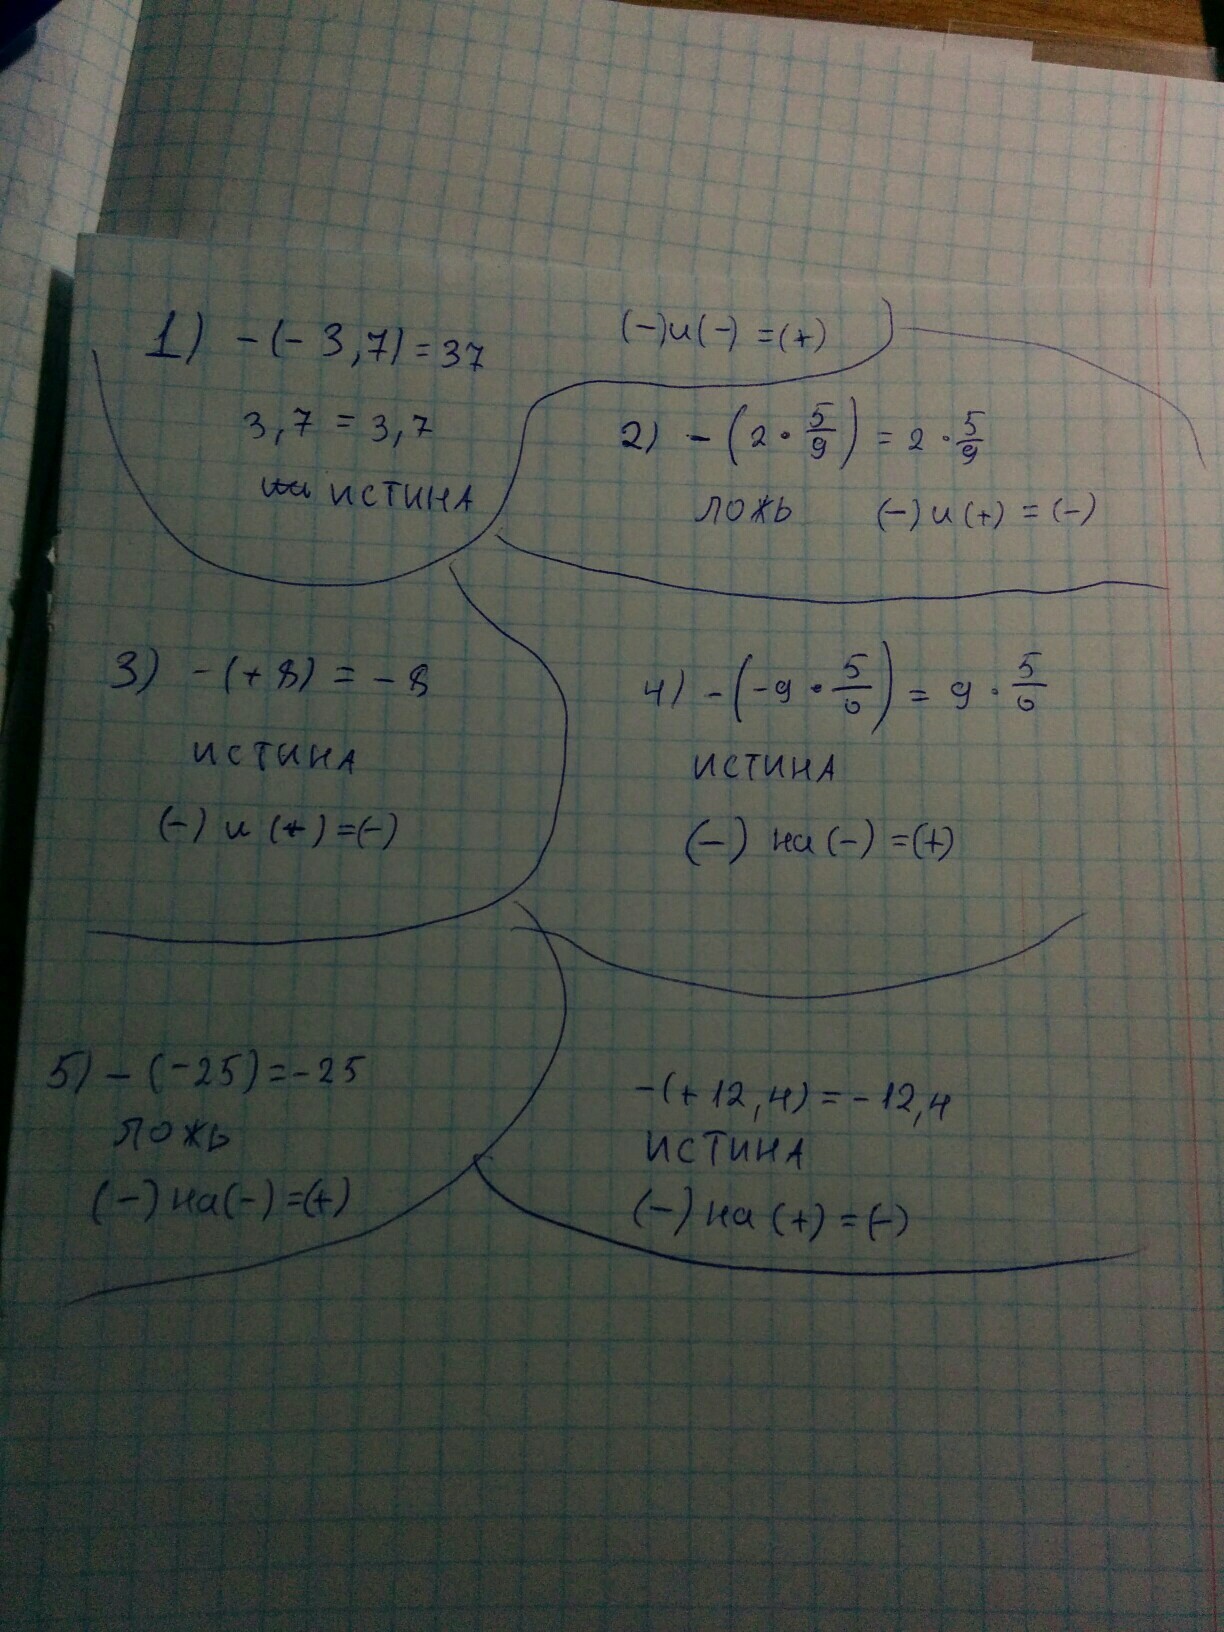 1) -(-3,7)=37
(-)и(-) =(+)
3,7 = 3,7
ИСТИНА
2) -(2·5/9) = 2·5/9
ЛОЖЬ (-)и(+) = (-)
3) -(+8) = -8
ИСТИНА
(-) и (+)=(-)
4) -(-9·5/6) = 9·5/6
ИСТИНА
(-) на(-) =(+)
5) -(-25)=-25
ЛОЖЬ
(-)на(-)=(+)
-(+12,4)=-12,4
ИСТИНА
(-) на (+) = (-)